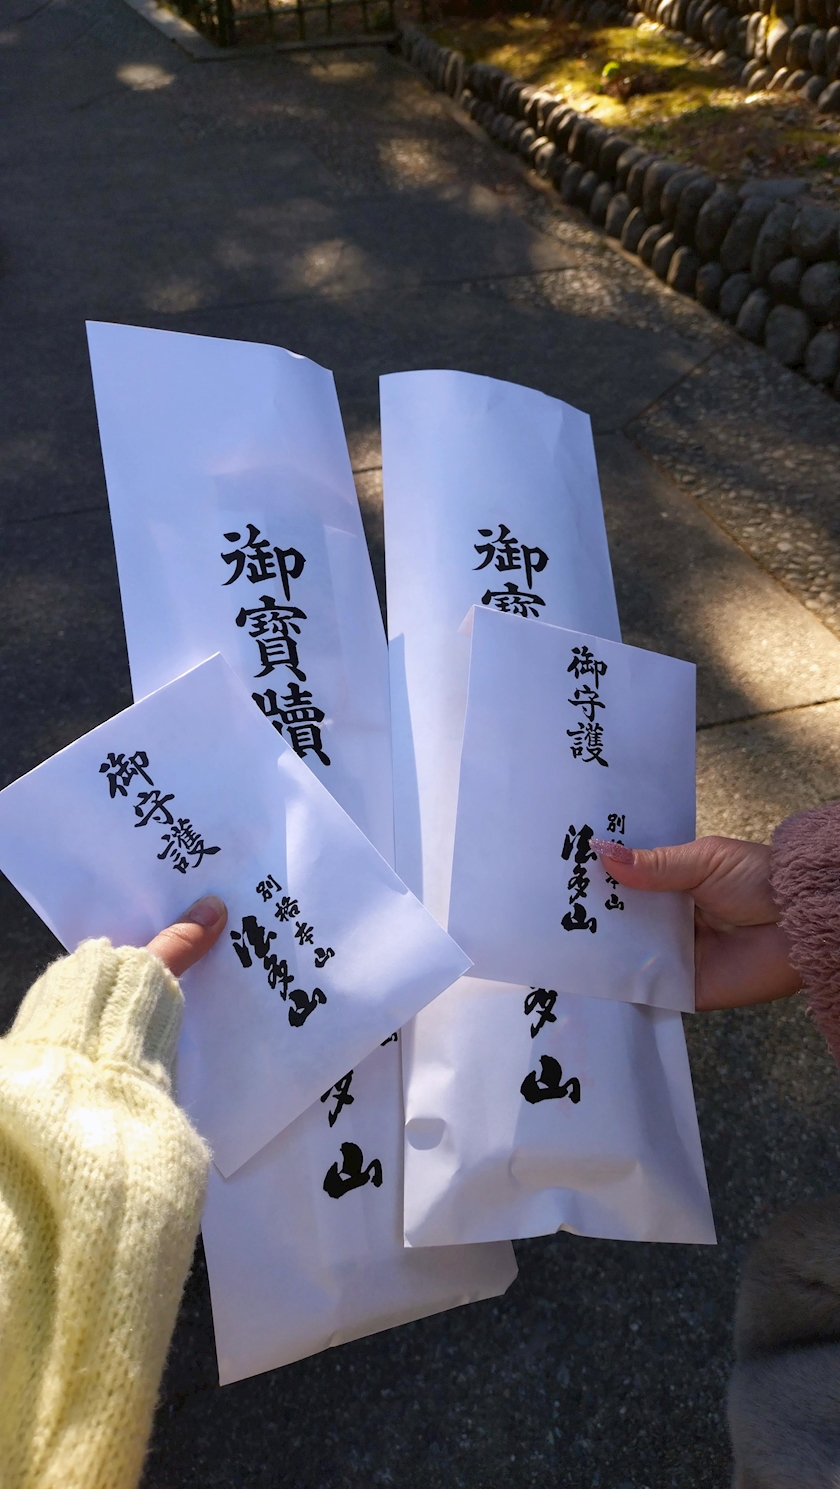 御寶牘
御寶
御守護
別格本山
法多山
御守護
別
本山
法多山
多山
多山